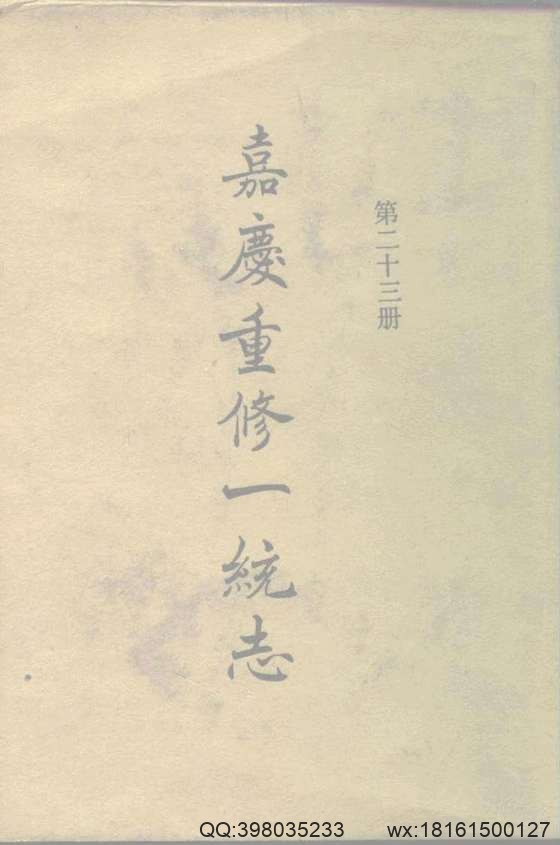 第二十三册
嘉慶重修一統志
QQ:398035233 wx:18161500127